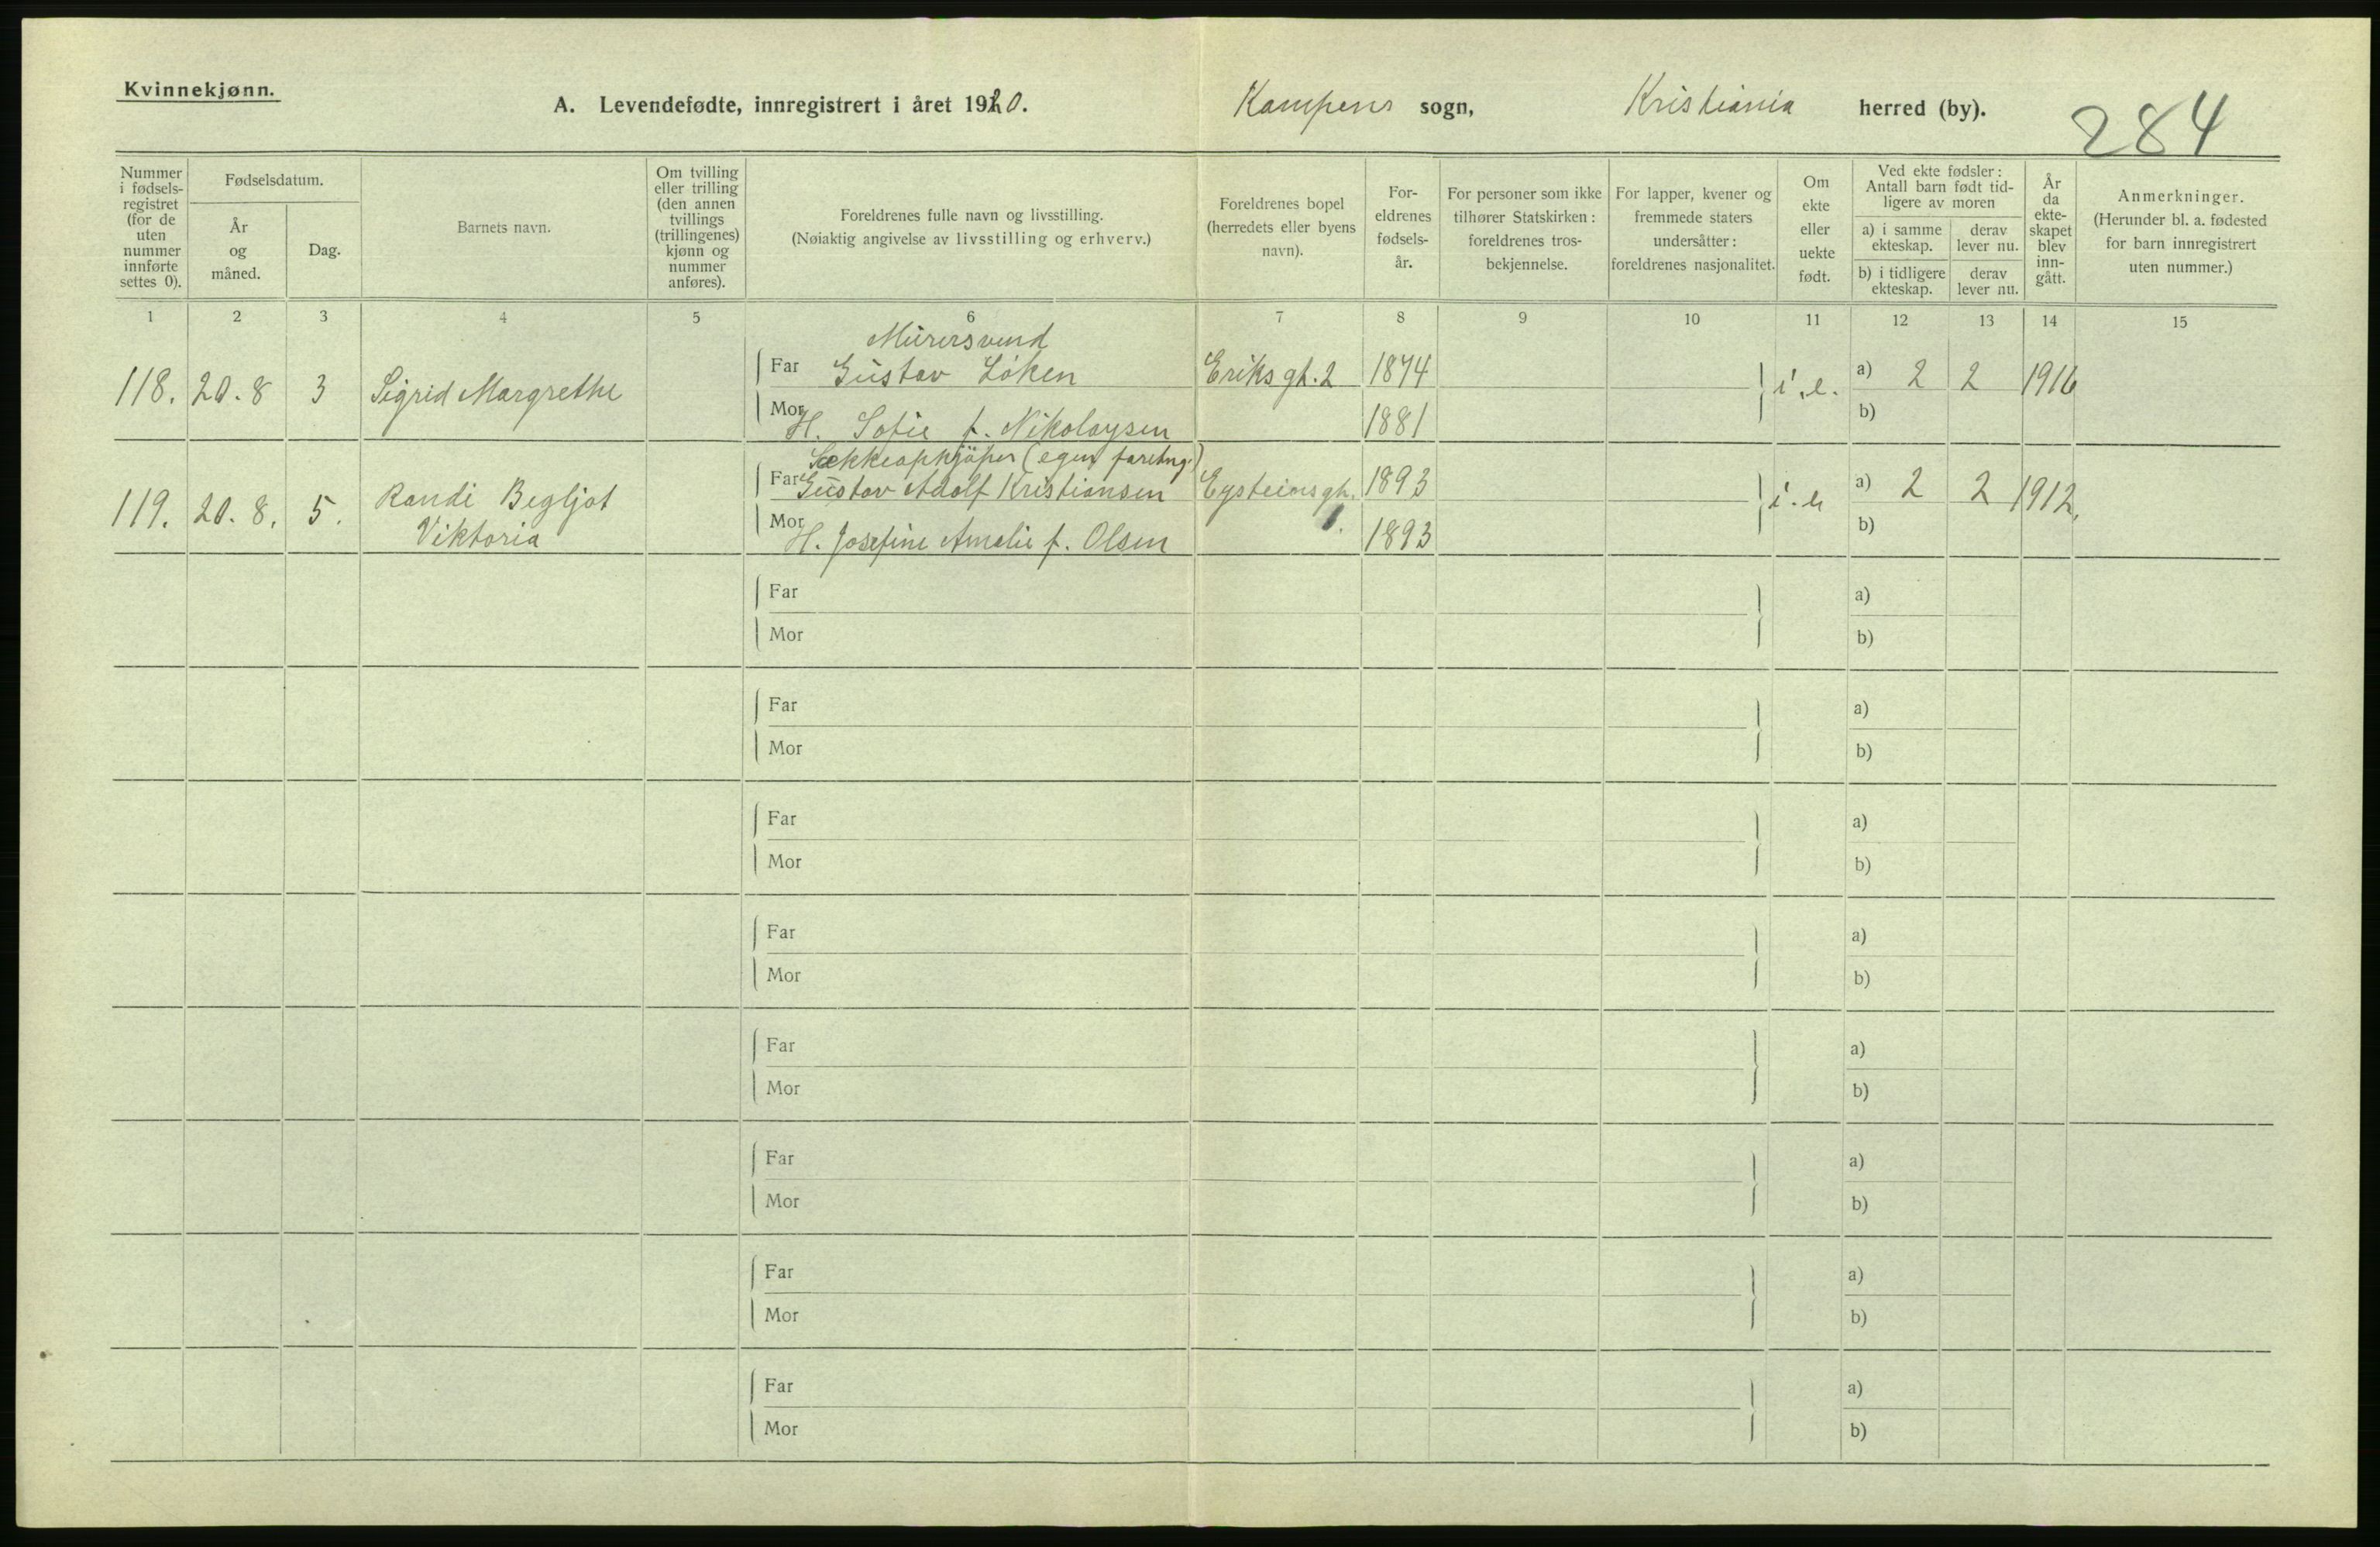 Kvinnekjønn.
A. Levendefødte, innregistrert i året 1920. Kampens sogn, Kristiania herred (by). 284
Nummer i fødsels-registret (for de uten nummer innførte settes 0).
Fødselsdatum.
År og måned.
Dag.
Barnets navn.
Om tvilling eller trilling (den annen tvillings (trillingenes) kjønn og nummer anføres).
Foreldrenes fulle navn og livsstilling.
(Nøiaktig angivelse av livsstilling og erhverv.)
Foreldrenes bopel (herredets eller byens navn).
For-eldrenes fødsels-år.
For personer som ikke tilhører Statskirken: foreldrenes tros-bekjennelse.
For lapper, kvener og fremmede staters undersåtter: foreldrenes nasjonalitet.
Om ekte eller uekte født.
Ved ekte fødsler: Antall barn født tid-ligere av moren
a) i samme ekteskap.
derav lever nu.
b) i tidligere ekteskap.
derav lever nu.
År da ekte-skapet blev inn-gått.
Anmerkninger.
(Herunder bl. a. fødested for barn innregistrert uten nummer.)
1 2 3 4 5 6 7 8 9 10 11 12 13 14 15
Murersvend
118. 20.8 3 Sigrid Margrethe Far Gustav Løken Eriks gt. 2 1874 i.e. a) 2 2 1916
Mor H. Sofie f. Nikolaysen 1881 b)
Sækkeopkjøper (egen foretng.)
119. 20.8. 5. Randi Begljot Far Gustav Adolf Kristiansen Eysteinsgt. 1893 i.e a) 2 2 1912.
Viktoria Mor H. Josefine Amalie f. Olsen 1. 1893 b)
Far a)
Mor b)
Far a)
Mor b)
Far a)
Mor b)
Far a)
Mor b)
Far a)
Mor b)
Far a)
Mor b)
Far a)
Mor b)
Far a)
Mor b)